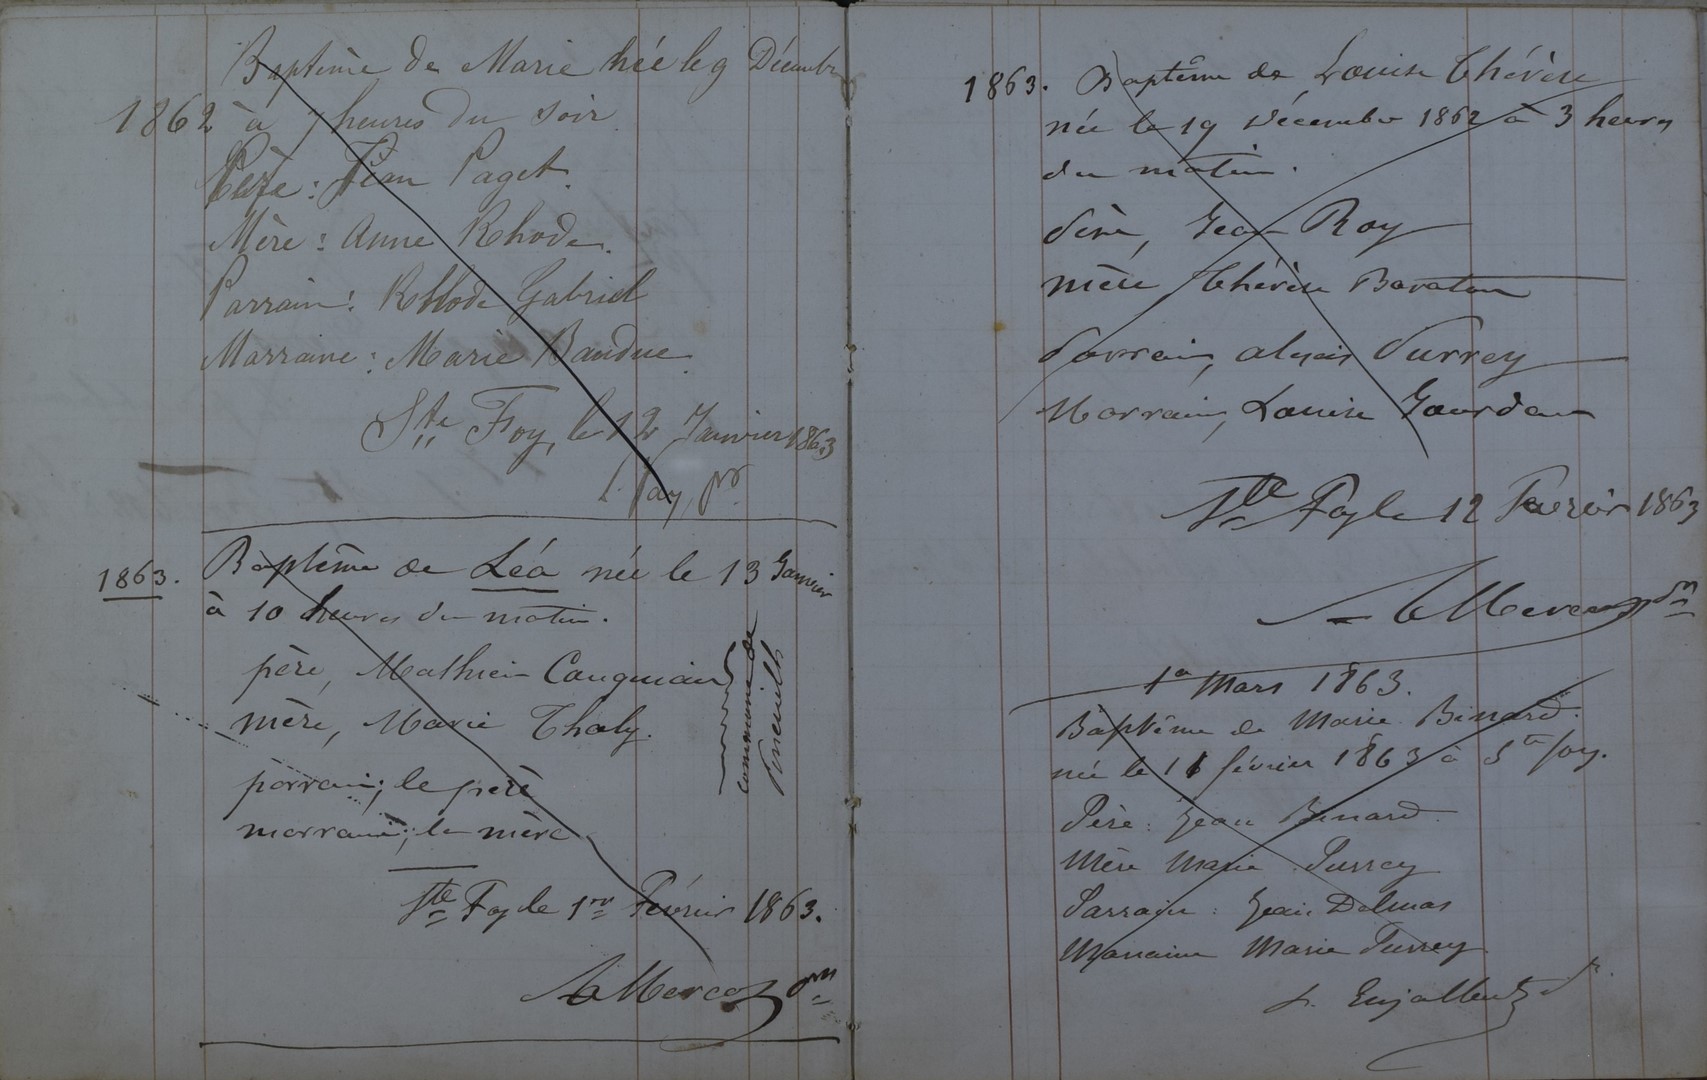 Baptême de Marie née le 9 Décembre
1862 à 7 heures du soir
Père : Jean Paget.
Mère : Anne Rhode.
Parrain : Rhode Gabriel
Marraine : Marie Bandue.
Ste Foy, le 12 Janvier 1863
pr
1863. Baptême de Léa née le 13 Janvier
à 10 heures du matin.
père, Mathieu
mère, Marie Thaly.
parrain, le père
marraine, la mère
commune de
Pineuilh
Ste Foy le 1er Février 1863.
1863. Baptême de Louise Thérèse
née le 19 Décembre 1862 à 3 heures
du matin.
Père, Jean Roy
mère Thérèse Baraton
Parrain, Purrey
Marraine, Louise Jourdan
Ste Foy le 12 Février 1863
1er Mars 1863.
Baptême de Marie Binard.
née le 11 février 1863 à Ste foy.
Père : Jean Binard
Mère Marie Purrey
Parrain : Jean Delmas
Marraine Marie Purrey